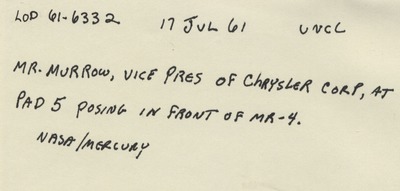 LOD 61-6332 17 JUL 61 UNCL
MR. MURROW, VICE PRES OF CHRYSLER CORP, AT
PAD 5 POSING IN FRONT OF MR-4.
NASA/MERCURY